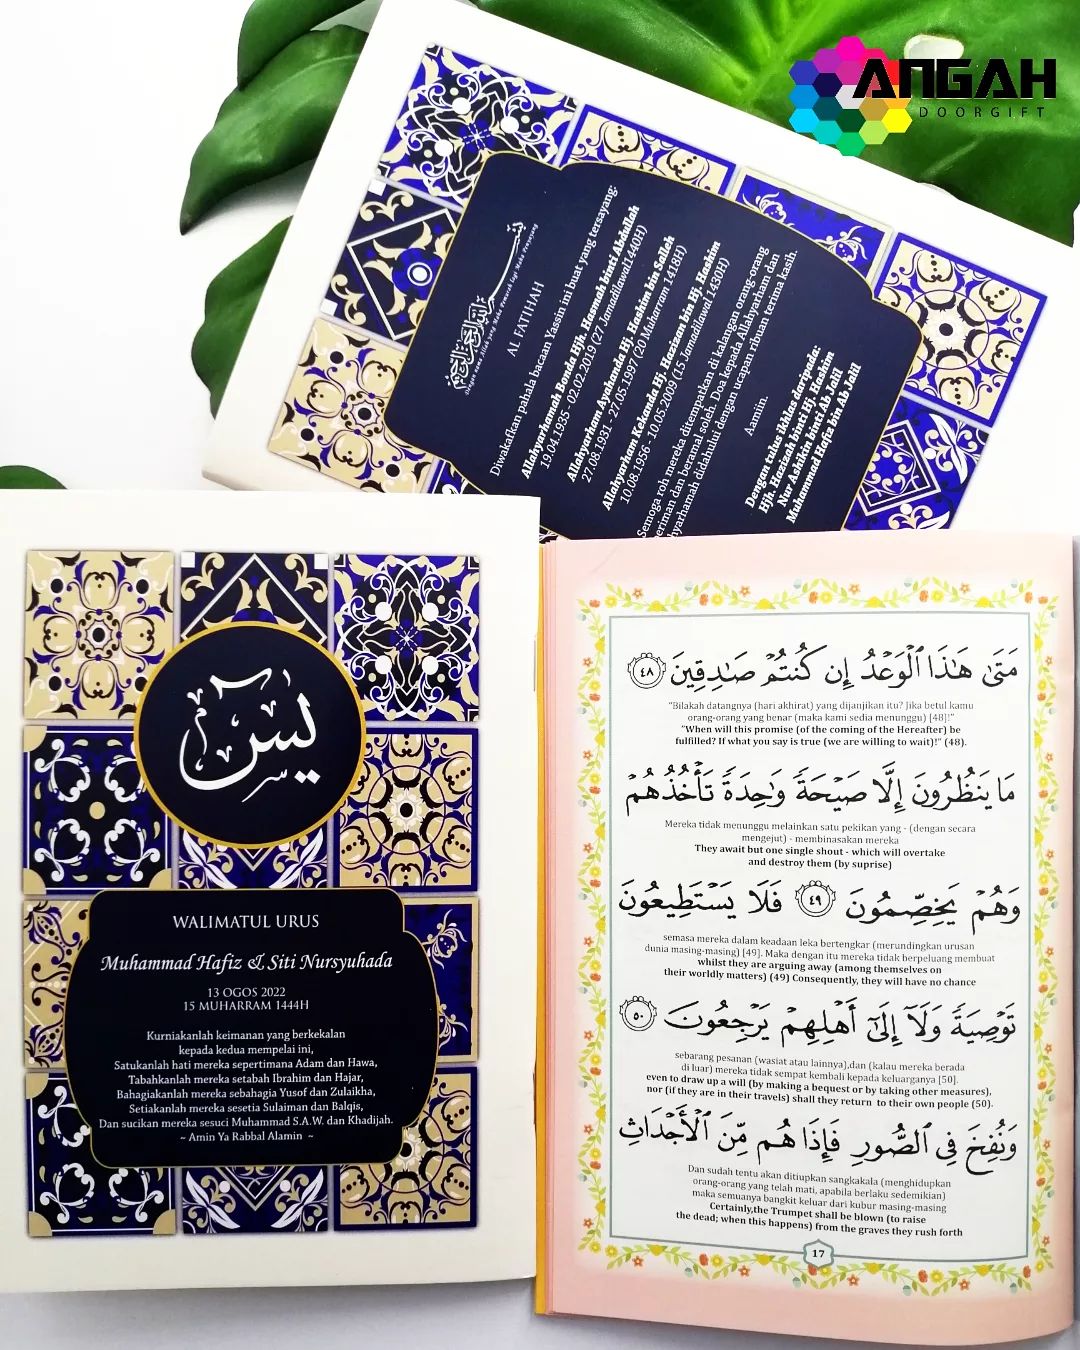 ANGAH
DOORGIFT
بسم الله الرحمن الرحيم
Dengan nama Allah yang Maha Pemurah lagi Maha Penyayang
AL FATIHAH
Diwakafkan pahala bacaan Yassin ini buat yang tersayang:
Allahyarhamah Bonda Hjh. Hasmah binti Abdullah
19.04.1935 - 02.02.2019 (27 Jamadilawal 1440H)
Allahyarham Ayahanda Hj. Hashim bin Salleh
27.08.1931 - 27.05.1997 (20 Muharram 1418H)
Allahyarham Kekanda Hj. Hafizan bin Hj. Hashim
10.08.1956 - 10.05.2009 (15 Jamadilawal 1430H)
Semoga roh mereka ditempatkan di kalangan orang-orang
beriman dan beramal soleh. Doa kepada Allahyarham dan
Allahyarhamah didahului dengan ucapan ribuan terima kasih.
Aamiin.
Dengan tulus ikhlas daripada:
Hjh. Hazizah binti Hj. Hashim
Nur Ashikin binti Ab Jalil
Muhammad Hafiz bin Ab Jalil
يس
WALIMATUL URUS
Muhammad Hafiz & Siti Nursyuhada
13 OGOS 2022
15 MUHARRAM 1444H
Kurniakanlah keimanan yang berkekalan
kepada kedua mempelai ini,
Satukanlah hati mereka sepertimana Adam dan Hawa,
Tabahkanlah mereka setabah Ibrahim dan Hajar,
Bahagiakanlah mereka sebahagia Yusof dan Zulaikha,
Setiakanlah mereka sesetia Sulaiman dan Balqis,
Dan sucikan mereka sesuci Muhammad S.A.W. dan Khadijah.
~ Amin Ya Rabbal Alamin ~
مَتَىٰ هَـٰذَا ٱلْوَعْدُ إِن كُنتُمْ صَـٰدِقِينَ ٤٨
"Bilakah datangnya (hari akhirat) yang dijanjikan itu? Jika betul kamu
orang-orang yang benar (maka kami sedia menunggu) [48]!"
"When will this promise (of the coming of the Hereafter) be
fulfilled? If what you say is true (we are willing to wait)!" (48).
مَا يَنظُرُونَ إِلَّا صَيْحَةً وَٰحِدَةً تَأْخُذُهُمْ
Mereka tidak menunggu melainkan satu pekikan yang - (dengan secara
mengejut) - membinasakan mereka
They await but one single shout - which will overtake
and destroy them (by suprise)
وَهُمْ يَخِصِّمُونَ ٤٩ فَلَا يَسْتَطِيعُونَ
semasa mereka dalam keadaan leka bertengkar (merundingkan urusan
dunia masing-masing) [49]. Maka dengan itu mereka tidak berpeluang membuat
whilst they are arguing away (among themselves on
their worldly matters) (49) Consequently, they will have no chance
تَوْصِيَةً وَلَآ إِلَىٰٓ أَهْلِهِمْ يَرْجِعُونَ ٥٠
sebarang pesanan (wasiat atau lainnya),dan (kalau mereka berada
di luar) mereka tidak sempat kembali kepada keluarganya [50].
even to draw up a will (by making a bequest or by taking other measures),
nor (if they are in their travels) shall they return to their own people (50).
وَنُفِخَ فِي ٱلصُّورِ فَإِذَا هُم مِّنَ ٱلْأَجْدَاثِ
Dan sudah tentu akan ditiupkan sangkakala (menghidupkan
orang-orang yang telah mati, apabila berlaku sedemikian)
maka semuanya bangkit keluar dari kubur masing-masing
Certainly,the Trumpet shall be blown (to raise
the dead; when this happens) from the graves they rush forth
17